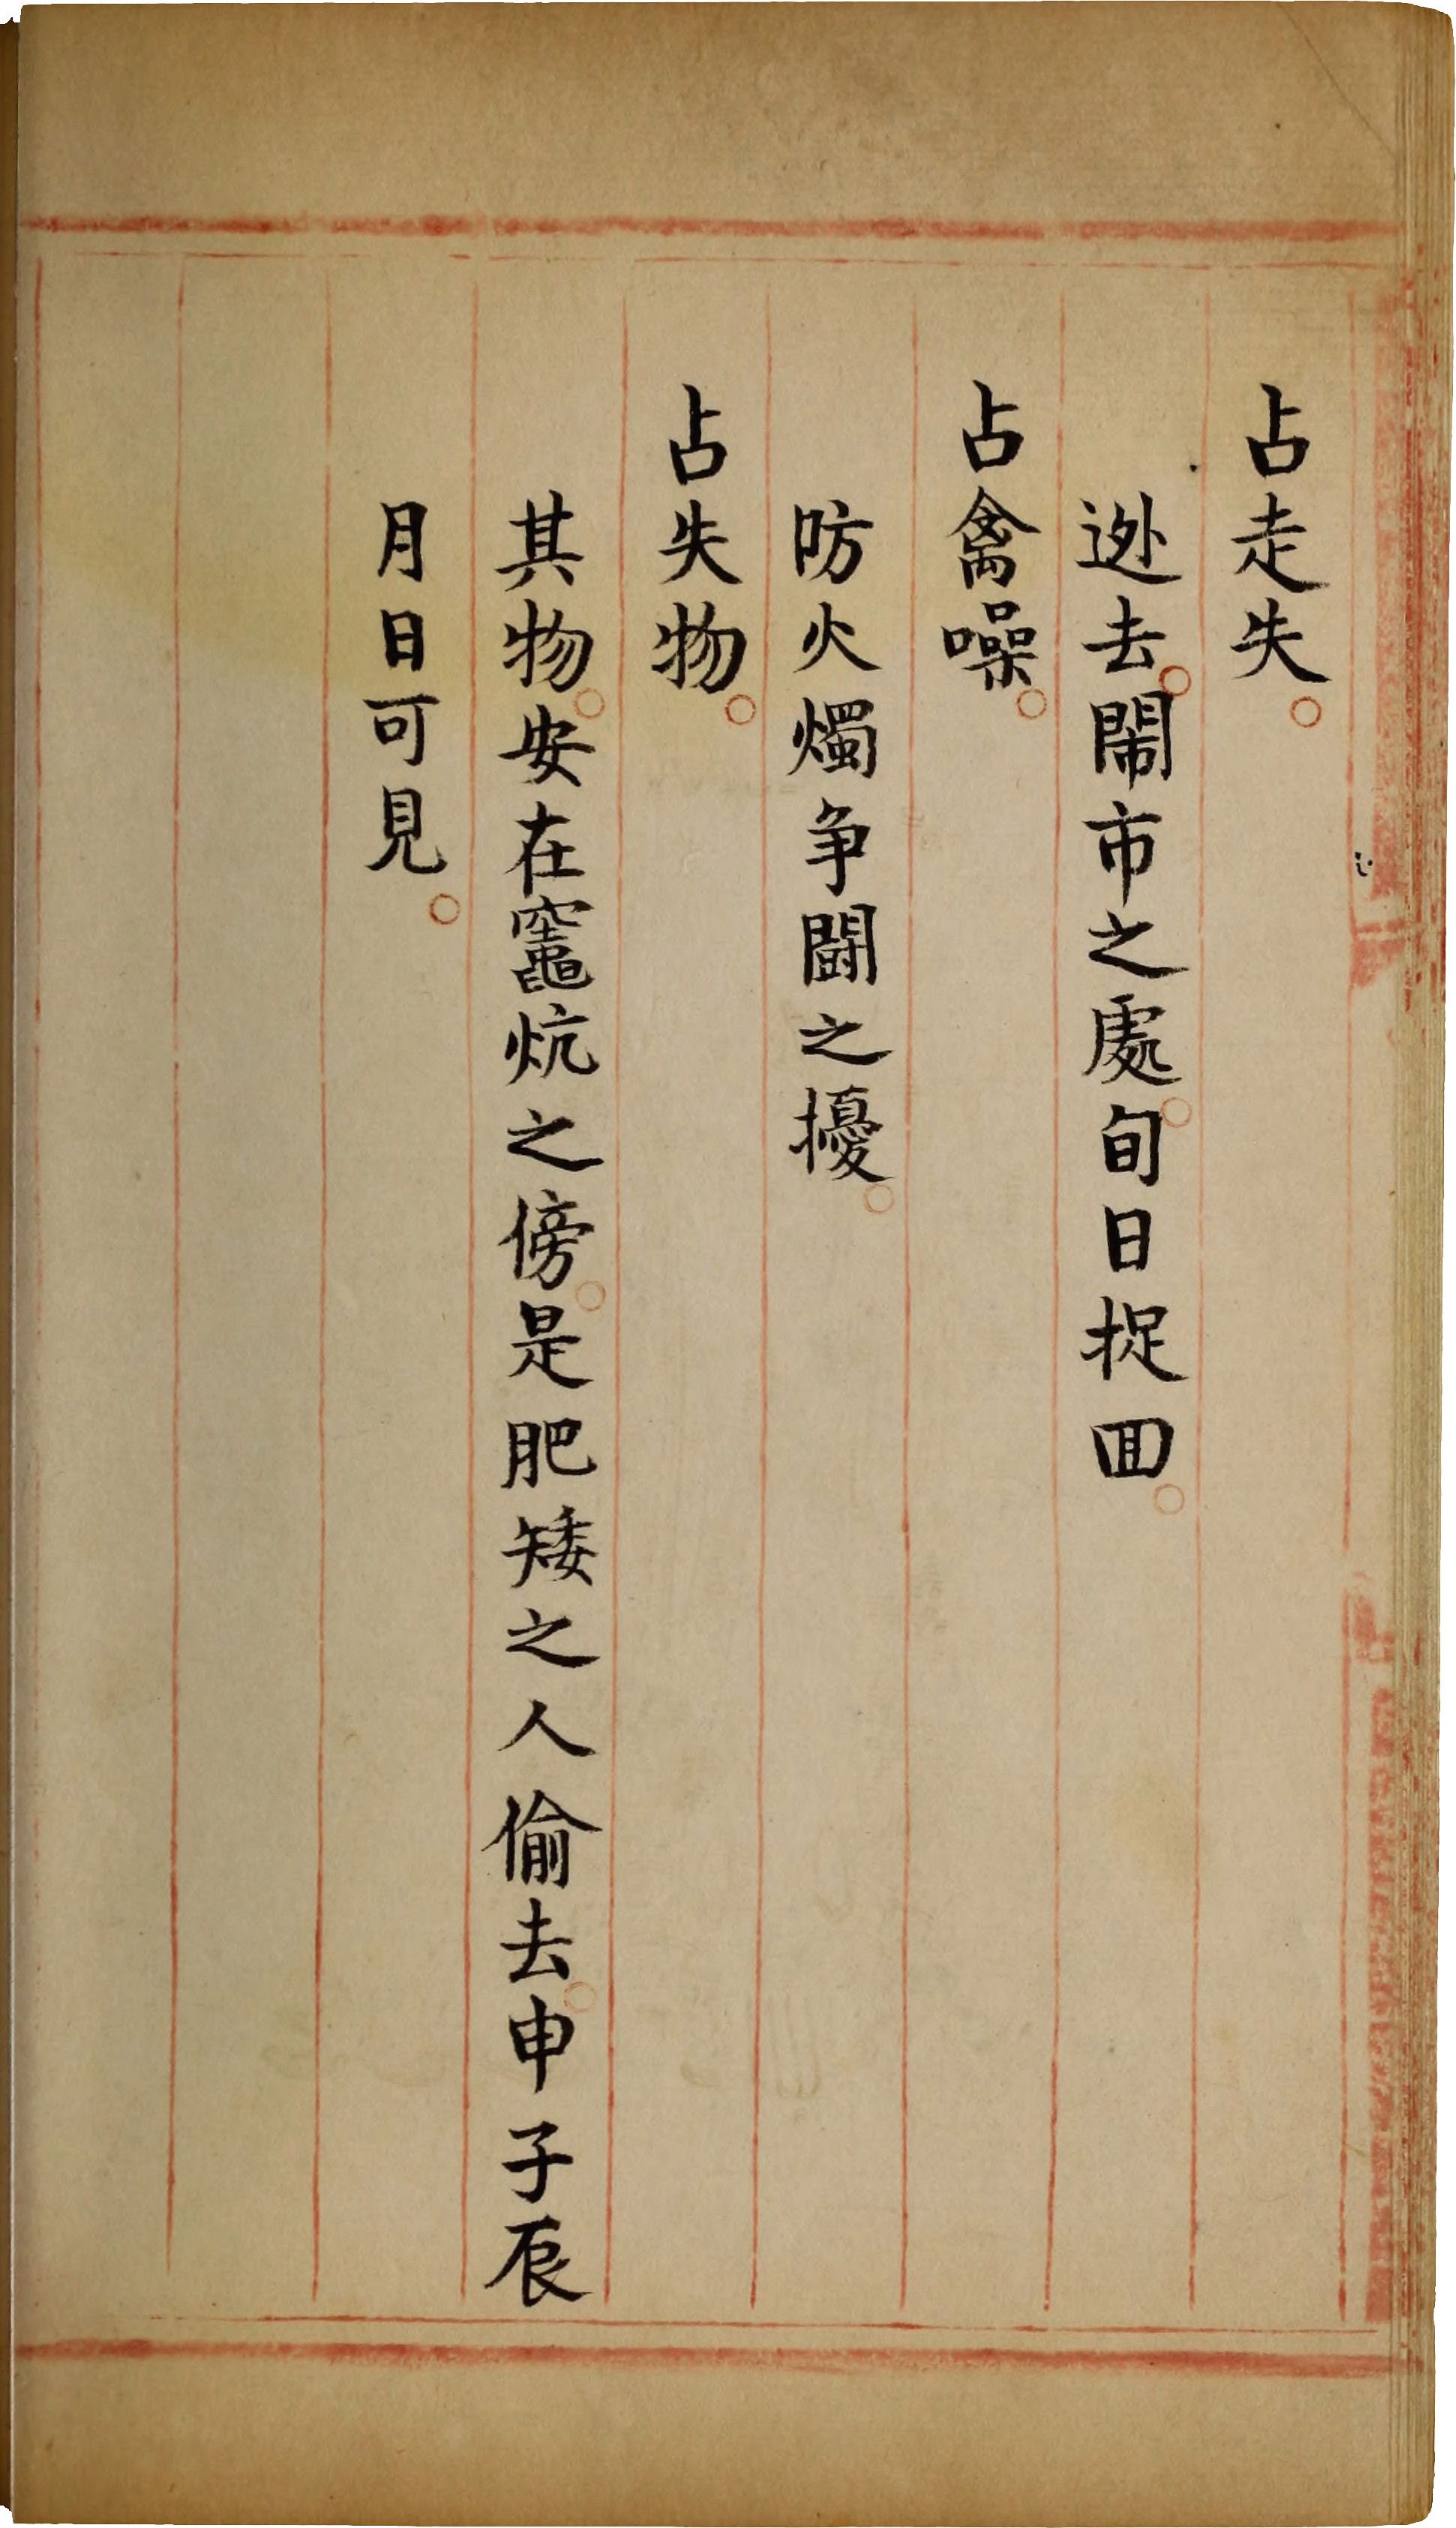 占走失。
逊去。鬧市之處。旬日捉囬。
占禽噪。
防火燭争鬪之擾。
占失物。
其物。安在竈炕之傍。是肥矮之人偷去。申子辰
月日可見。